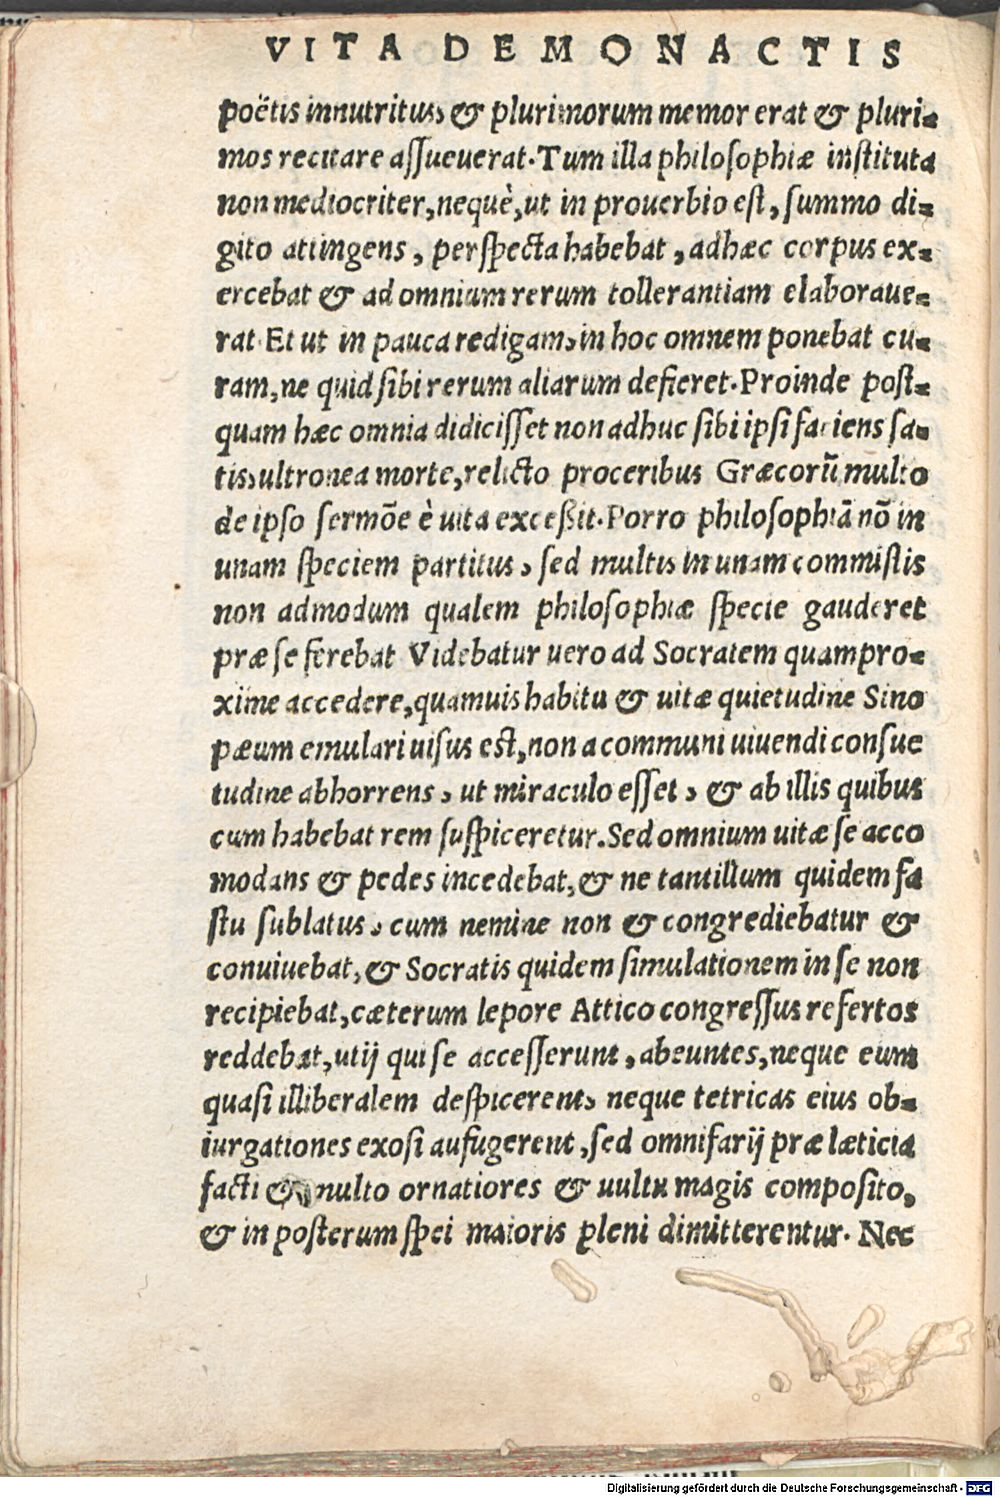 VITA DEMONACTIS
poëtis innutritus, & plurimorum memor erat & pluri-
mos recitare assueuerat. Tum illa philosophiæ instituta
non mediocriter, nequè, ut in prouerbio est, summo di-
gito attingens, perspecta habebat, adhæc corpus ex-
ercebat & ad omnium rerum tollerantiam elaboraue-
rat. Et ut in pauca redigam, in hoc omnem ponebat cu-
ram, ne quid sibi rerum aliarum defieret. Proinde post-
quam hæc omnia didicisset non adhuc sibi ipsi faciens sa-
tis, ultronea morte, relicto proceribus Græcorũ multo
de ipso sermõe è uita exceßit. Porro philosophiã nõ in
unam speciem partitus, sed multis in unam commistis
non admodum qualem philosophiæ specie gauderet
præ se ferebat Videbatur uero ad Socratem quam pro-
xime accedere, quamuis habitu & uitæ quietudine Sino
pæum emulari uisus est, non a communi uiuendi consue
tudine abhorrens, ut miraculo esset, & ab illis quibus
cum habebat rem suspiceretur. Sed omnium uitæ se acco
modans & pedes incedebat, & ne tantillum quidem fa
stu sublatus, cum nemine non & congrediebatur &
conuiuebat, & Socratis quidem simulationem in se non
recipiebat, cæterum lepore Attico congressus refertos
reddebat, utij qui se accesserunt, abeuntes, neque eum
quasi illiberalem despicerent, neque tetricas eius ob-
iurgationes exosi aufugerent, sed omnifarij præ læticia
facti & multo ornatiores & uultu magis composito,
& in posterum spei maioris pleni dimitterentur. Nec
Digitalisierung gefördert durch die Deutsche Forschungsgemeinschaft - DFG